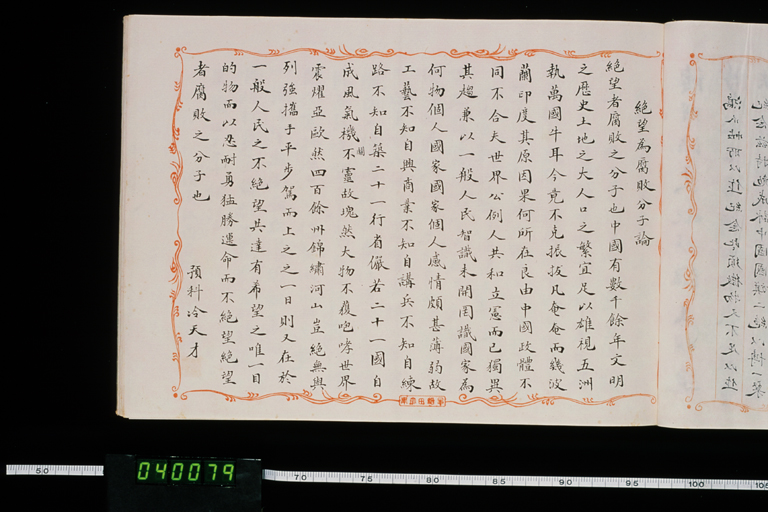 絕望為腐敗分子論
絕望者腐敗之分子也中國有數千餘年文明
之歷史土地之大人口之繁宜足以雄視五洲
執萬國牛耳今竟不克振拔凡奄奄而幾波
蘭印度其原因果何所在良由中國政體不
同不合夫世界公例人共和立憲而已獨異
其趨兼以一般人民智識未開罔識國家為
何物個人國家國家個人感情頗甚薄弱故
工藝不知自興商業不知自講兵不知自練
路不知自築二十一行省儼若二十一國自
成風氣機關不靈故塊然大物不復咆哮世界
震燿亞歐然四百餘州錦繡河山豈絕無與
列強攜手平步駕而上之之一日則又在於
一般人民之不絕望共達有希望之唯一目
的物而以忍耐勇猛勝運命而不絕望絕望
者腐敗之分子也
預科冷天才
040079
50
70
75
80
85
90
95
100
105